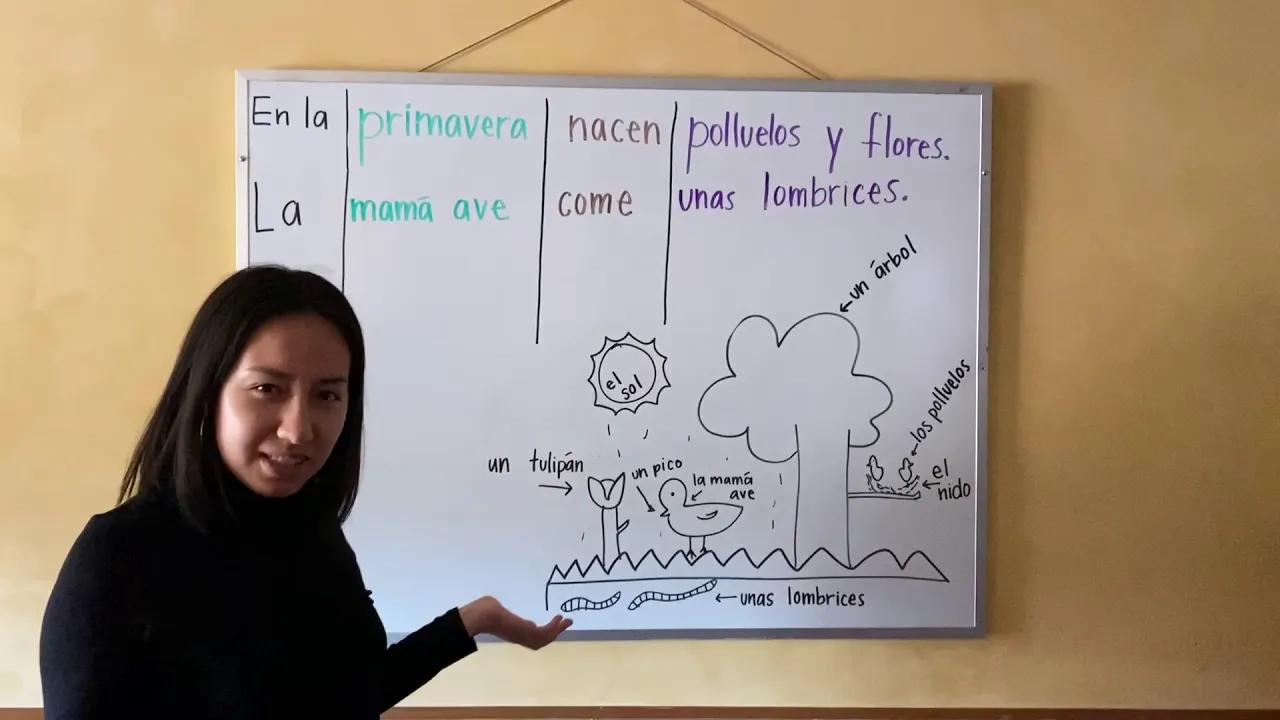 En la primavera nacen polluelos y flores.
La mamá ave come unas lombrices.
un árbol
el
sol
los polluelos
un tulipán
un pico
la mamá
ave
el
nido
unas lombrices